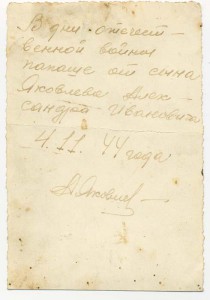 В дни отечест-
венной войны
папаше от сына
Яковлева Алек-
сандра Ивановича
4.11.44 года
А. Яковлев